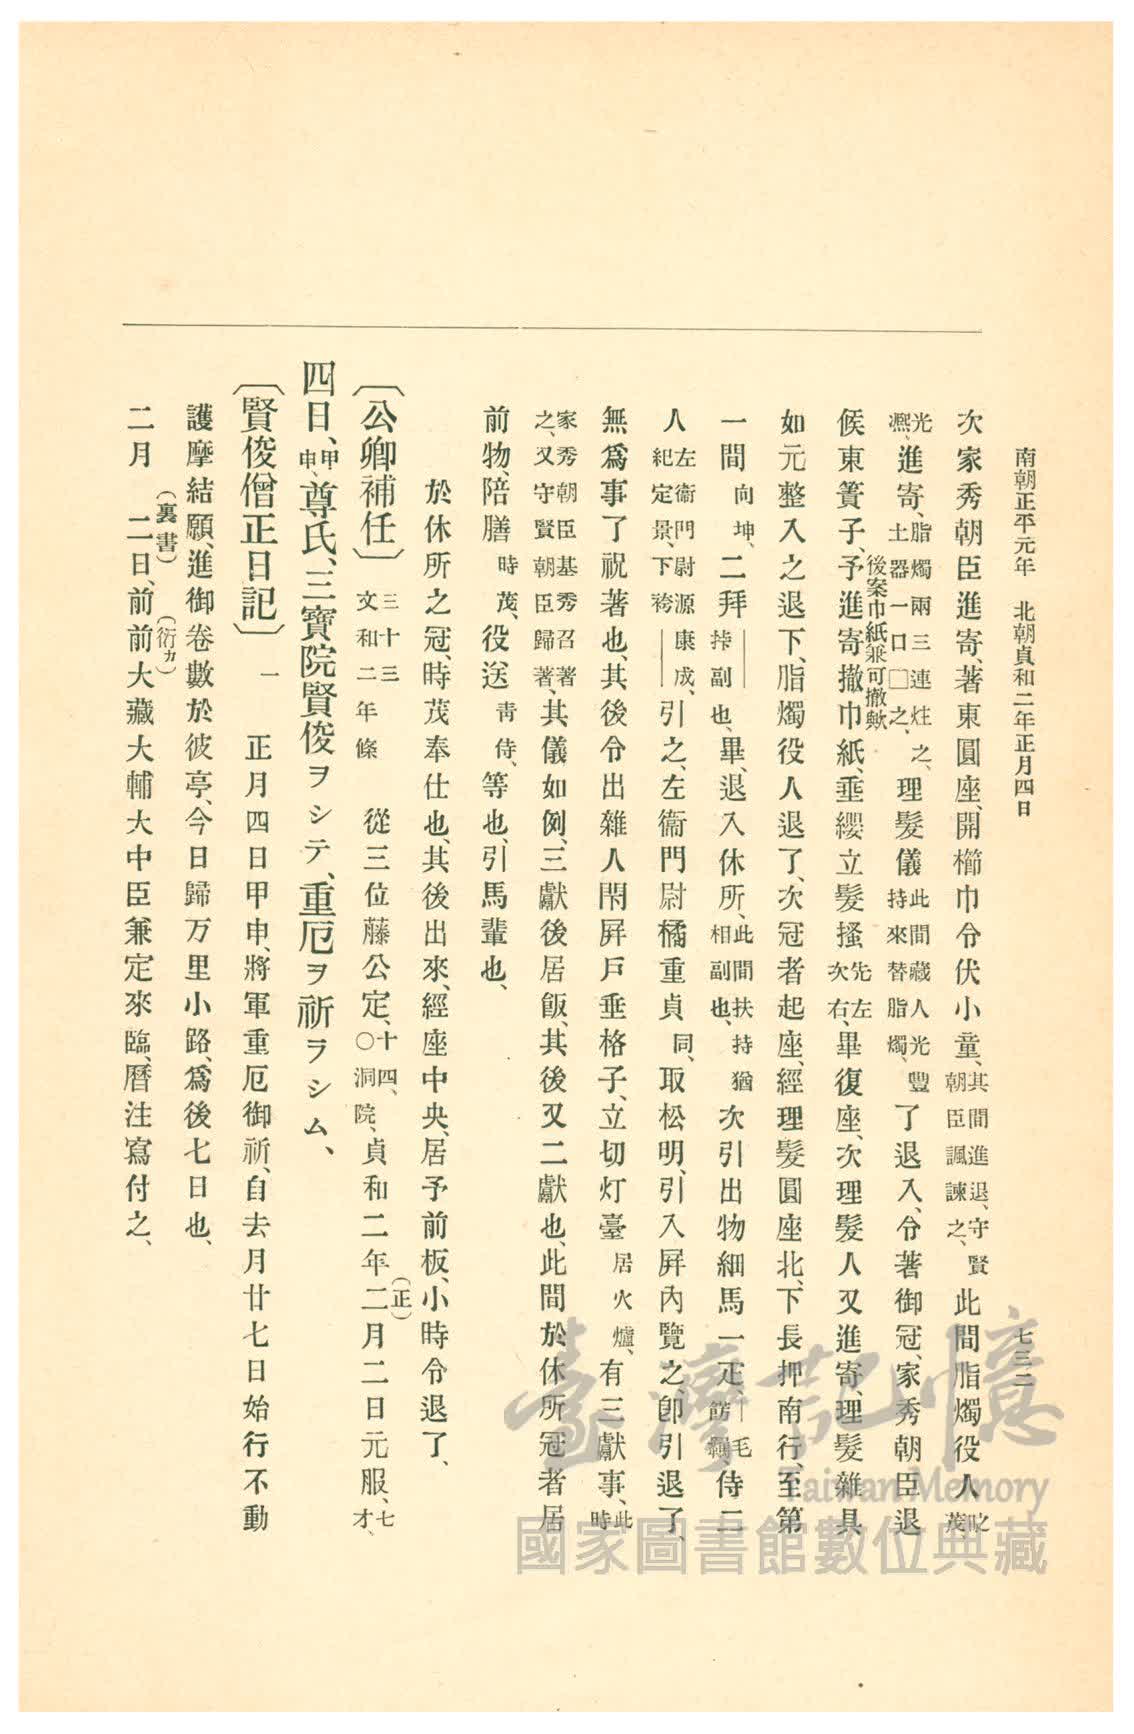 南朝正平元年　北朝貞和二年正月四日
七三二
次家秀朝臣進寄、著東圓座、開櫛巾令伏小童、其間進退、守賢朝臣諷諫之、此間脂燭役人茂
光凞、進寄、脂燭兩三連炷之、土器一口□之、理髮儀此間藏人光豐持來替脂燭、了退入、令著御冠、家秀朝臣退
候東簀子、予進寄撤巾紙、後案巾紙兼可撤歟垂纓立髮搔先左次右、畢復座、次理髮人又進寄、理髮雜具
如元整入之退下、脂燭役人退了、次冠者起座、經理髮圓座北、下長押南行、至第
一間向坤、二拜――拤副也、畢、退入休所、此間扶持猶相副也、次引出物細馬一疋、―毛、侍二
人左衞門尉源康成、紀定景、下袴――引之、左衞門尉橘重貞同、取松明、引入屛內覽之卽引退了、
無爲事了祝著也、其後令出雜人閇屛戶垂格子、立切灯臺居火爐、有三獻事、此時
家秀朝臣基秀召著之、又守賢朝臣歸著、其儀如例、三獻後居飯、其後又二獻也、此間於休所冠者居
前物、陪膳時茂、役送靑侍、等也、引馬輩也、
於休所之冠、時茂奉仕也、其後出來、經座中央、居予前板、小時令退了、
〔公卿補任〕三十三文和二年條　從三位藤公定、十四、〇洞院、貞和二年二(正)月二日元服、七才、
四日、甲申、尊氏、三寶院賢俊ヲシテ、重厄ヲ祈ラシム、
〔賢俊僧正日記〕一　正月四日甲申、將軍重厄御祈、自去月廿七日始行不動
護摩結願、進御卷數於彼亭、今日歸万里小路、爲後七日也、
二月(裏書)二日、前前(衍カ)大藏大輔大中臣兼定來臨、曆注寫付之、
臺灣記憶
Taiwan Memory
國家圖書館數位典藏